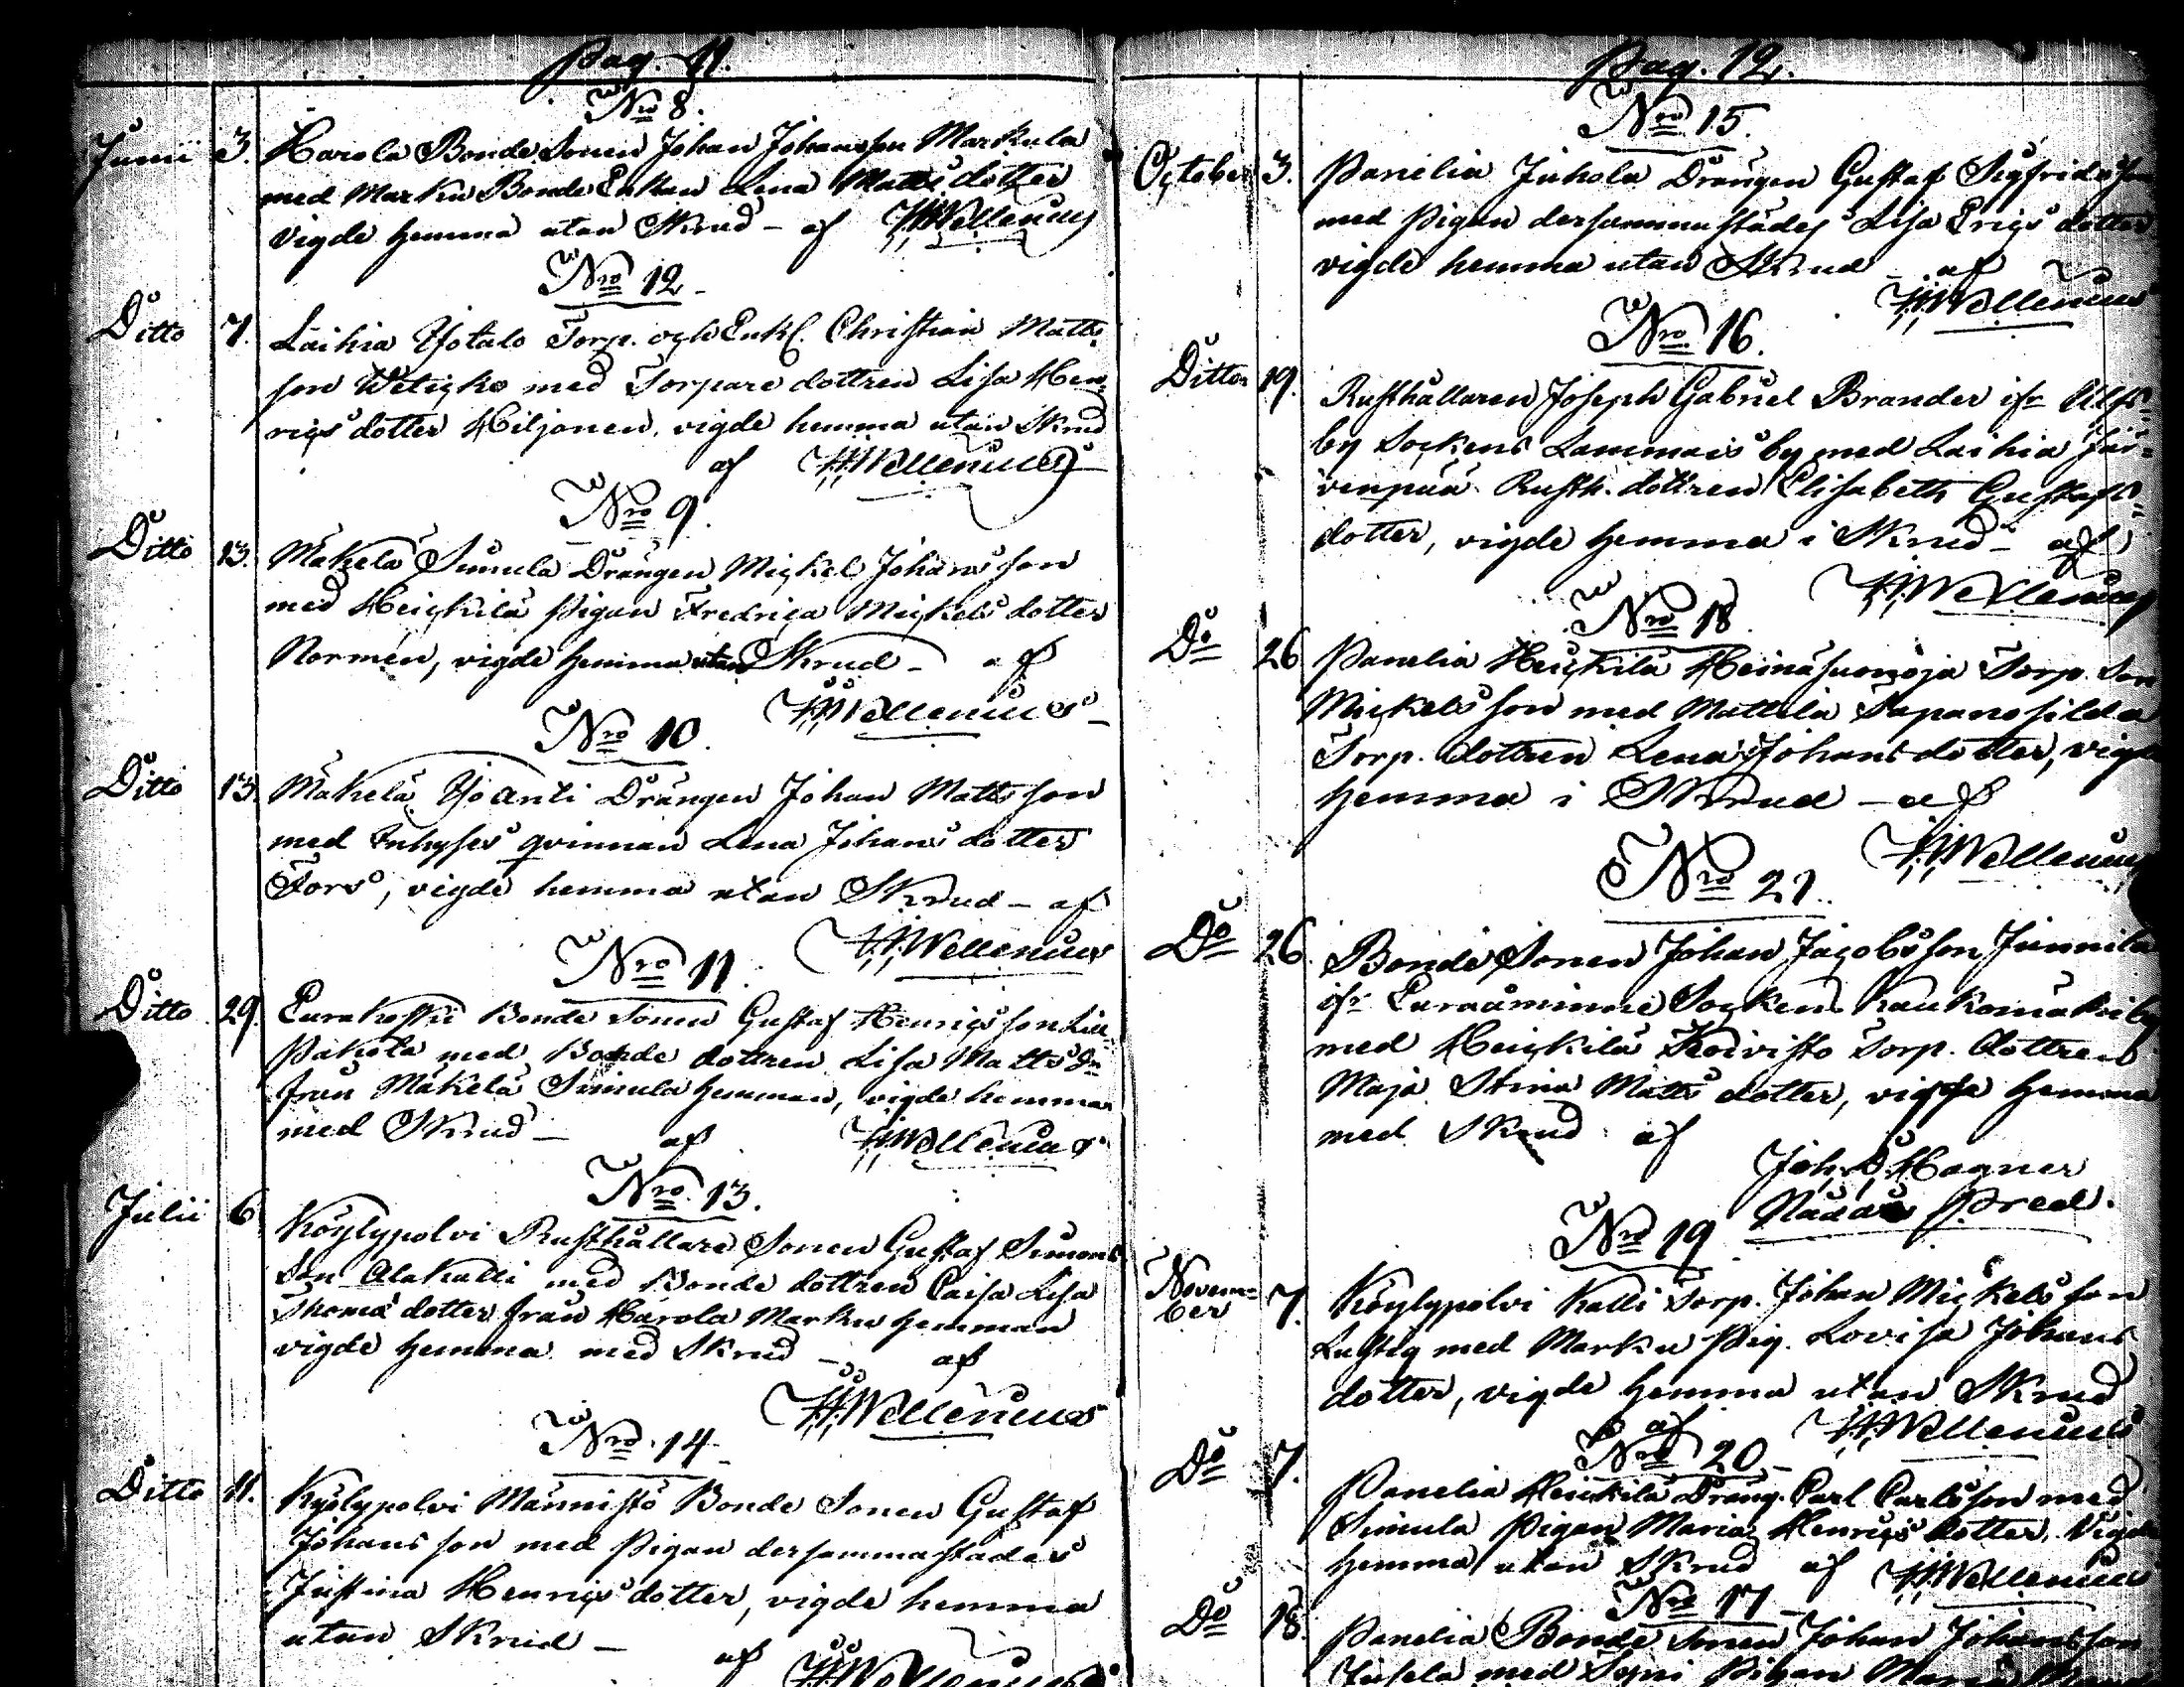 Pag. 11.
Nro 8.
Junii 3. Harola Bonde Sonen Johan Johansson Markula
med Marku Bonde Enkan Lena Matts dotter
vigde hemma utan Skrud - af HWellenius
Nro 12.
Ditto 7. Laihia Yotalo Torp. och Enkl. Christian Matts
son Weticko med Torpare dottren Lisa Hen
rics dotter Hiljanen, vigde hemma utan Skrud
af HWellenius
Nro 9.
Ditto 13. Mäkelä Simula Drängen Mickel Johansson
med Heickilä Pigan Fredrica Mickels dotter
Normén, vigde hemma utan Skrud - af
HWellenius
Nro 10.
Ditto 13. Mäkelä Yo Anti Drängen Johan Matts son
med Inhyses qvinnan Lena Johans dotter
Fors, vigde hemma utan Skrud - af
HWellenius
Nro 11.
Ditto 29. Eurakoski Bonde Sonen Gustaf Henrics son Lill
Pakola med Bonde dottren Lisa Matts Dr
från Mäkelä Simula hemman, vigde hemma
med Skrud - af HWellenius
Nro 13.
Julii 6. Köylypolvi Rusthållare Sonen Gustaf Simons
son Alakalli med Bonde dottren Caisa Lisa
Thomas dotter från Harola Marku hemman
vigde hemma med Skrud - af
HWellenius
Nro 14.
Ditto 11. Kyölypolvi Männistö Bonde Sonen Gustaf
Johans son med Pigan dersammastädes
Justina Henrics dotter, vigde hemma
utan Skrud - af HWellenius
Pag. 12.
Nro 15.
October 3. Panelia Juhola Drängen Gustaf Sigfridsson
med Pigan dersammastädes Lisa Erics dotter
vigde hemma utan Skrud - af
HWellenius
Nro 16.
Ditto 19. Rusthållaren Joseph Gabriel Brander ifr. Ulfs
by Sockens Lammais by med Laihia Jär=
venpää Rusth. dottren Elisabeth Gustafs
dotter, vigde hemma i Skrud - af
HWellenius
Nro 18.
Do 26 Panelia Heickilä Heinäsuonoja Torp. Son
Mickels son med Mattila Tapanosilda
Torp. dottren Lena Johans dotter, vigde
hemma i Skrud - af
HWellenius
Nro 21.
Do 26. Bonde Sonen Johan Jacobsson Junnila
ifr. Euraåminne Socken Kaukomäki by
med Heickilä Koivisto Torp. dottren
Maja Stina Matts dotter, vigde hemma
med Skrud af
Joh. Hagner
Nådårs Pred.
Nro 19
Novem=
ber 7. Köylypolvi Kalli Torp. Johan Mickelsson
Lustig med Marku Pig. Lovisa Johans
dotter, vigde hemma utan Skrud
af HWellenius
Nro 20.
Do 7. Panelia Heickilä Dräng. Carl Carlsson med
Simula Pigan Maria Henrics dotter. Vigde
hemma utan Skrud af HWellenius
Nro 17
Do 18. Panelia Bonde Sonen Johan Johansson
Jusela med Seppi Pigan